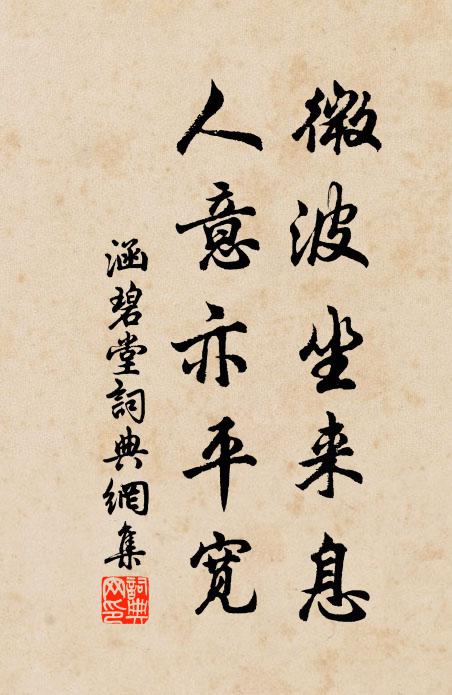 微波坐来息
人意亦平宽
涵碧堂詞典網集
詞典網印